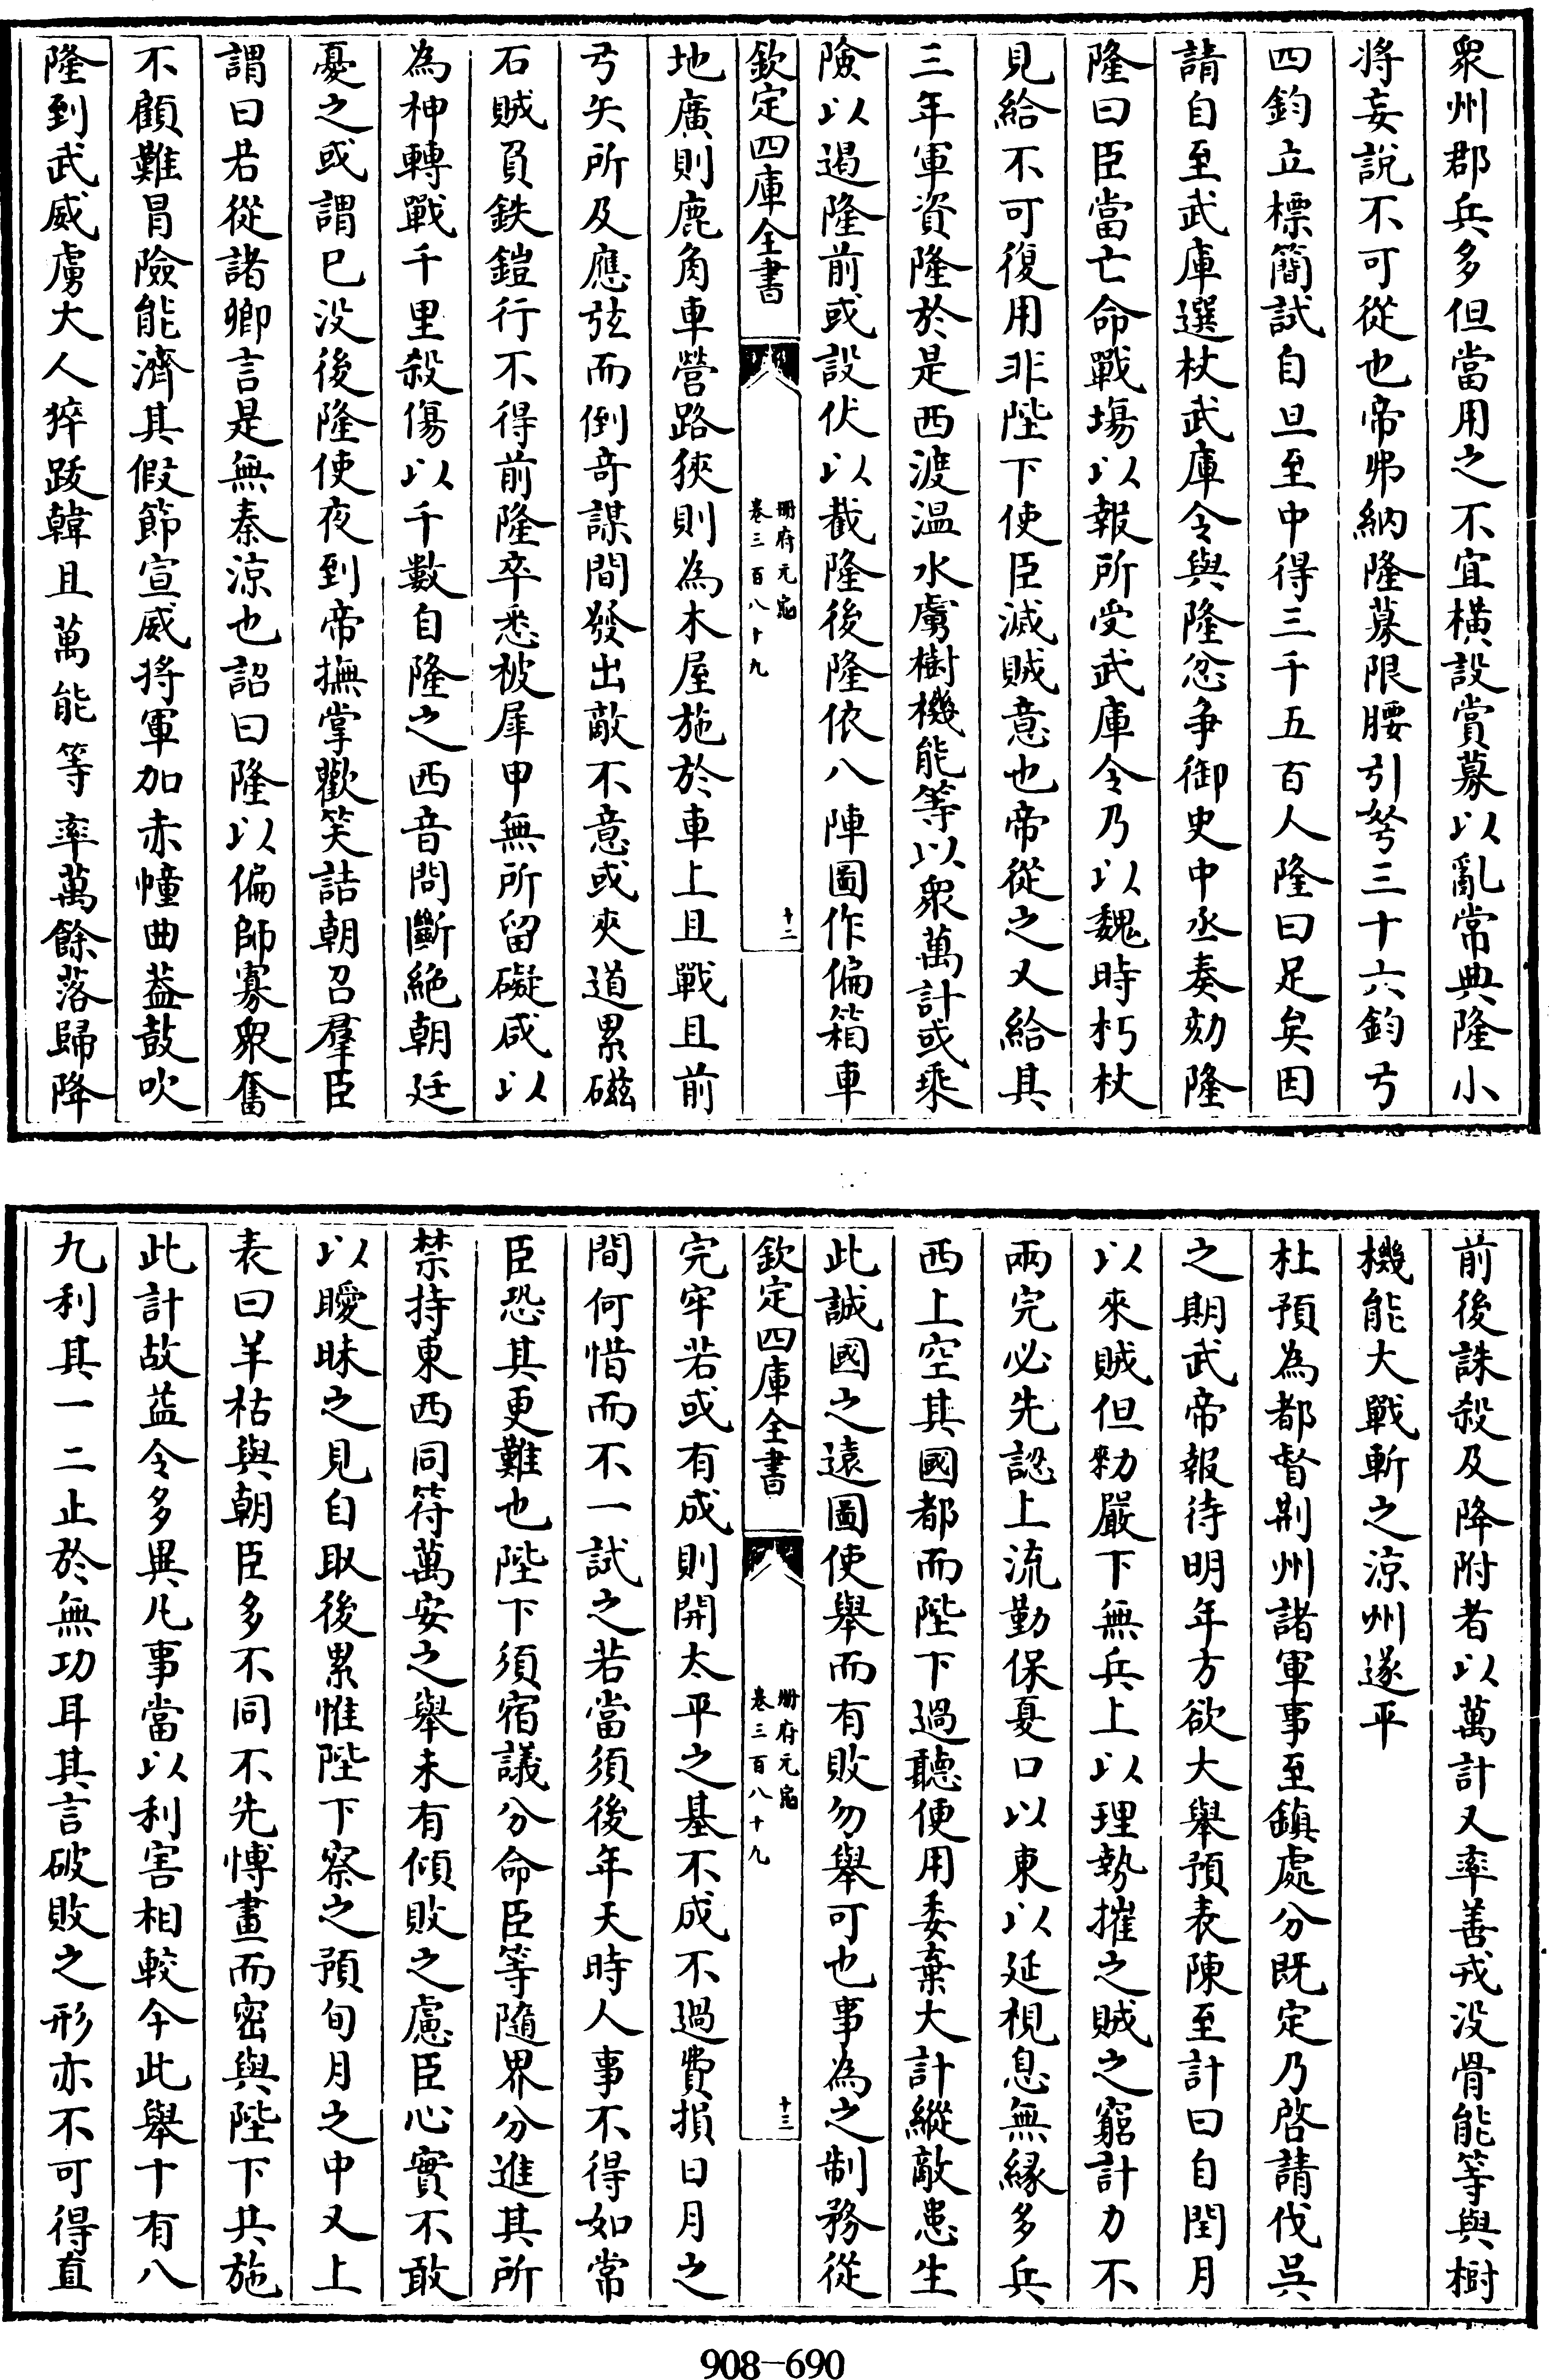 衆州郡兵多但當用之不宜橫設賞募以亂常典隆小
將妄說不可從也帝弗納隆募限腰引弩三十六鈞弓
四鈞立標簡試自旦至中得三千五百人隆曰足矣因
請自至武庫選杖武庫令與隆忿爭御史中丞奏劾隆
隆曰臣當亡命戰塲以報所受武庫令乃以魏時朽杖
見給不可復用非陛下使臣滅賊意也帝從之又給其
三年軍資隆於是西渡温水虜樹機能等以衆萬計或乘
險以遏隆前或設伏以截隆後隆依八陣圖作偏箱車
欽定四庫全書
冊府元龜
卷三百八十九
十二
地廣則鹿角車營路狹則為木屋施於車上且戰且前
弓矢所及應弦而倒奇謀間發出敵不意或夾道累磁
石賊負鉄鎧行不得前隆卒悉被犀甲無所留礙咸以
為神轉戰千里殺傷以千數自隆之西音問斷絶朝廷
憂之或謂已没後隆使夜到帝撫掌歡笑詰朝召羣臣
謂曰若從諸卿言是無秦涼也詔曰隆以偏師寡衆奮
不顧難冒險能濟其假節宣威將軍加赤幢曲葢鼓吹
隆到武威虜大人猝跋韓且萬能等率萬餘落歸降
前後誅殺及降附者以萬計又率善戎没骨能等與樹
機能大戰斬之涼州遂平
杜預為都督荆州諸軍事至鎮處分既定乃啓請伐吳
之期武帝報待明年方欲大舉預表陳至計曰自閏月
以來賊但勑嚴下無兵上以理勢摧之賊之窮計力不
兩完必先認上流勤保夏口以東以延視息無緣多兵
西上空其國都而陛下過聽便用委棄大計縱敵患生
此誠國之遠圖使舉而有敗勿舉可也事為之制務從
欽定四庫全書
冊府元龜
卷三百八十九
十三
完牢若或有成則開太平之基不成不過費損日月之
間何惜而不一試之若當須後年天時人事不得如常
臣恐其更難也陛下須宿議分命臣等隨界分進其所
禁持東西同符萬安之舉未有傾敗之慮臣心實不敢
以曖昧之見自取後累惟陛下察之預旬月之中又上
表曰羊枯與朝臣多不同不先慱畫而密與陛下共施
此計故益令多異凡事當以利害相較今此舉十有八
九利其一二止於無功耳其言破敗之形亦不可得直
908-690